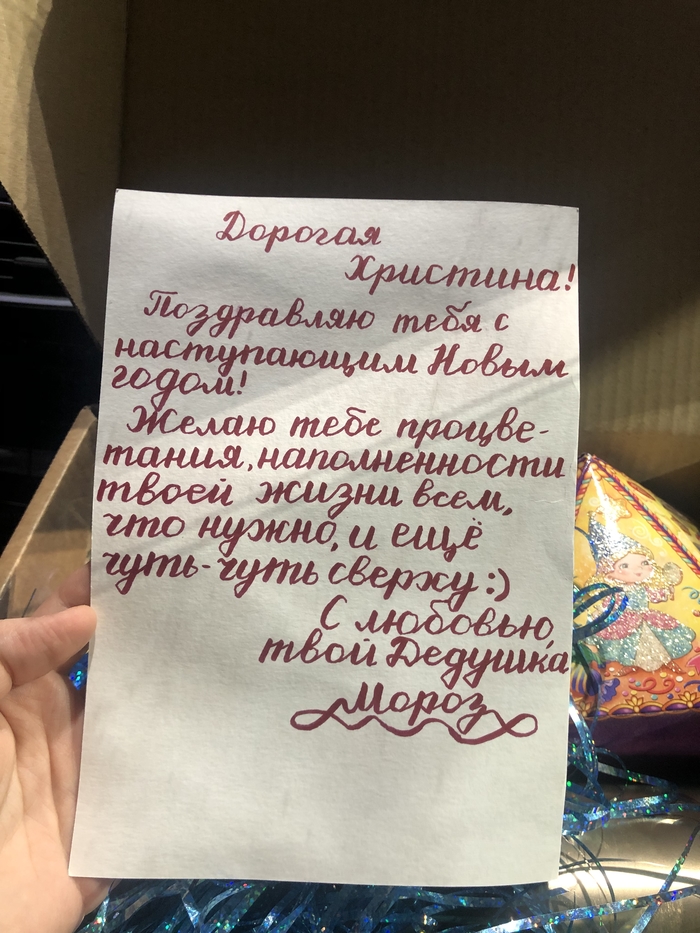 Дорогая
Христина!
Поздравляю тебя с
наступающим Новым
годом!
Желаю тебе процве-
тания, наполненности
твоей жизни всем,
что нужно, и ещё
чуть-чуть сверху :)
С любовью,
твой Дедушка
Мороз